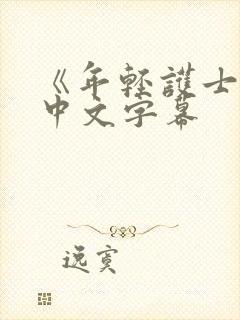 《年轻護士
中文字幕
逸寞